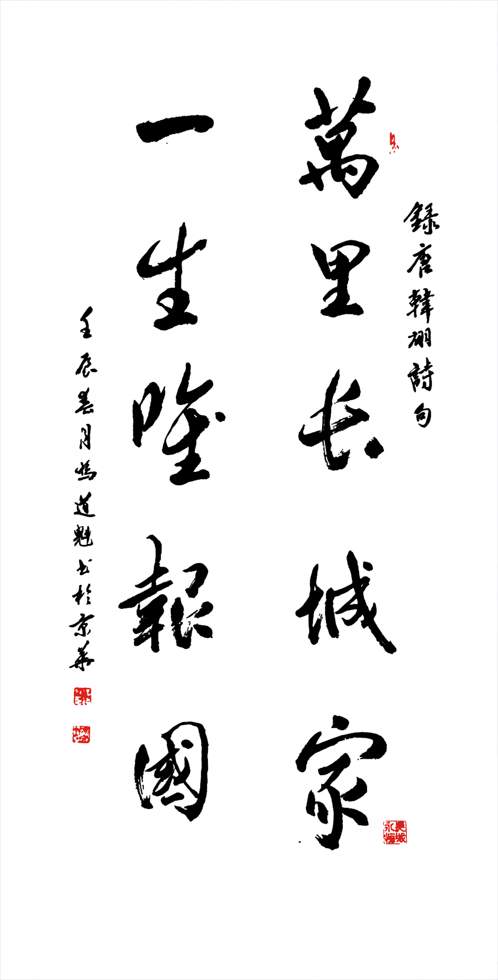 録唐韓翃詩句
萬里长城家
一生唯報國
壬辰春月馮道魁书於京華